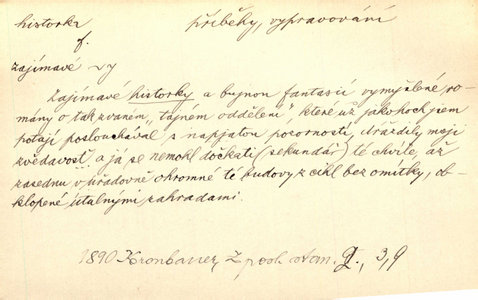 historka příběhy, vypravování
f.
zajímavé -y
Zajímavé historky a bujnou fantasií vymyšlené ro-
mány o tak zvaném „tajném oddělení", které už jako hoch jsem
potají poslouchával s napjatou pozorností, dráždily moji
zvědavost, a já se nemohl dočkati (sekundář) té chvíle, až
zasednu v úřadovně ohromné té budovy z cihl bez omítky, ob-
klopené útulnými zahradami.
1890 Kronbauer, Z pooh atom. 3, 9